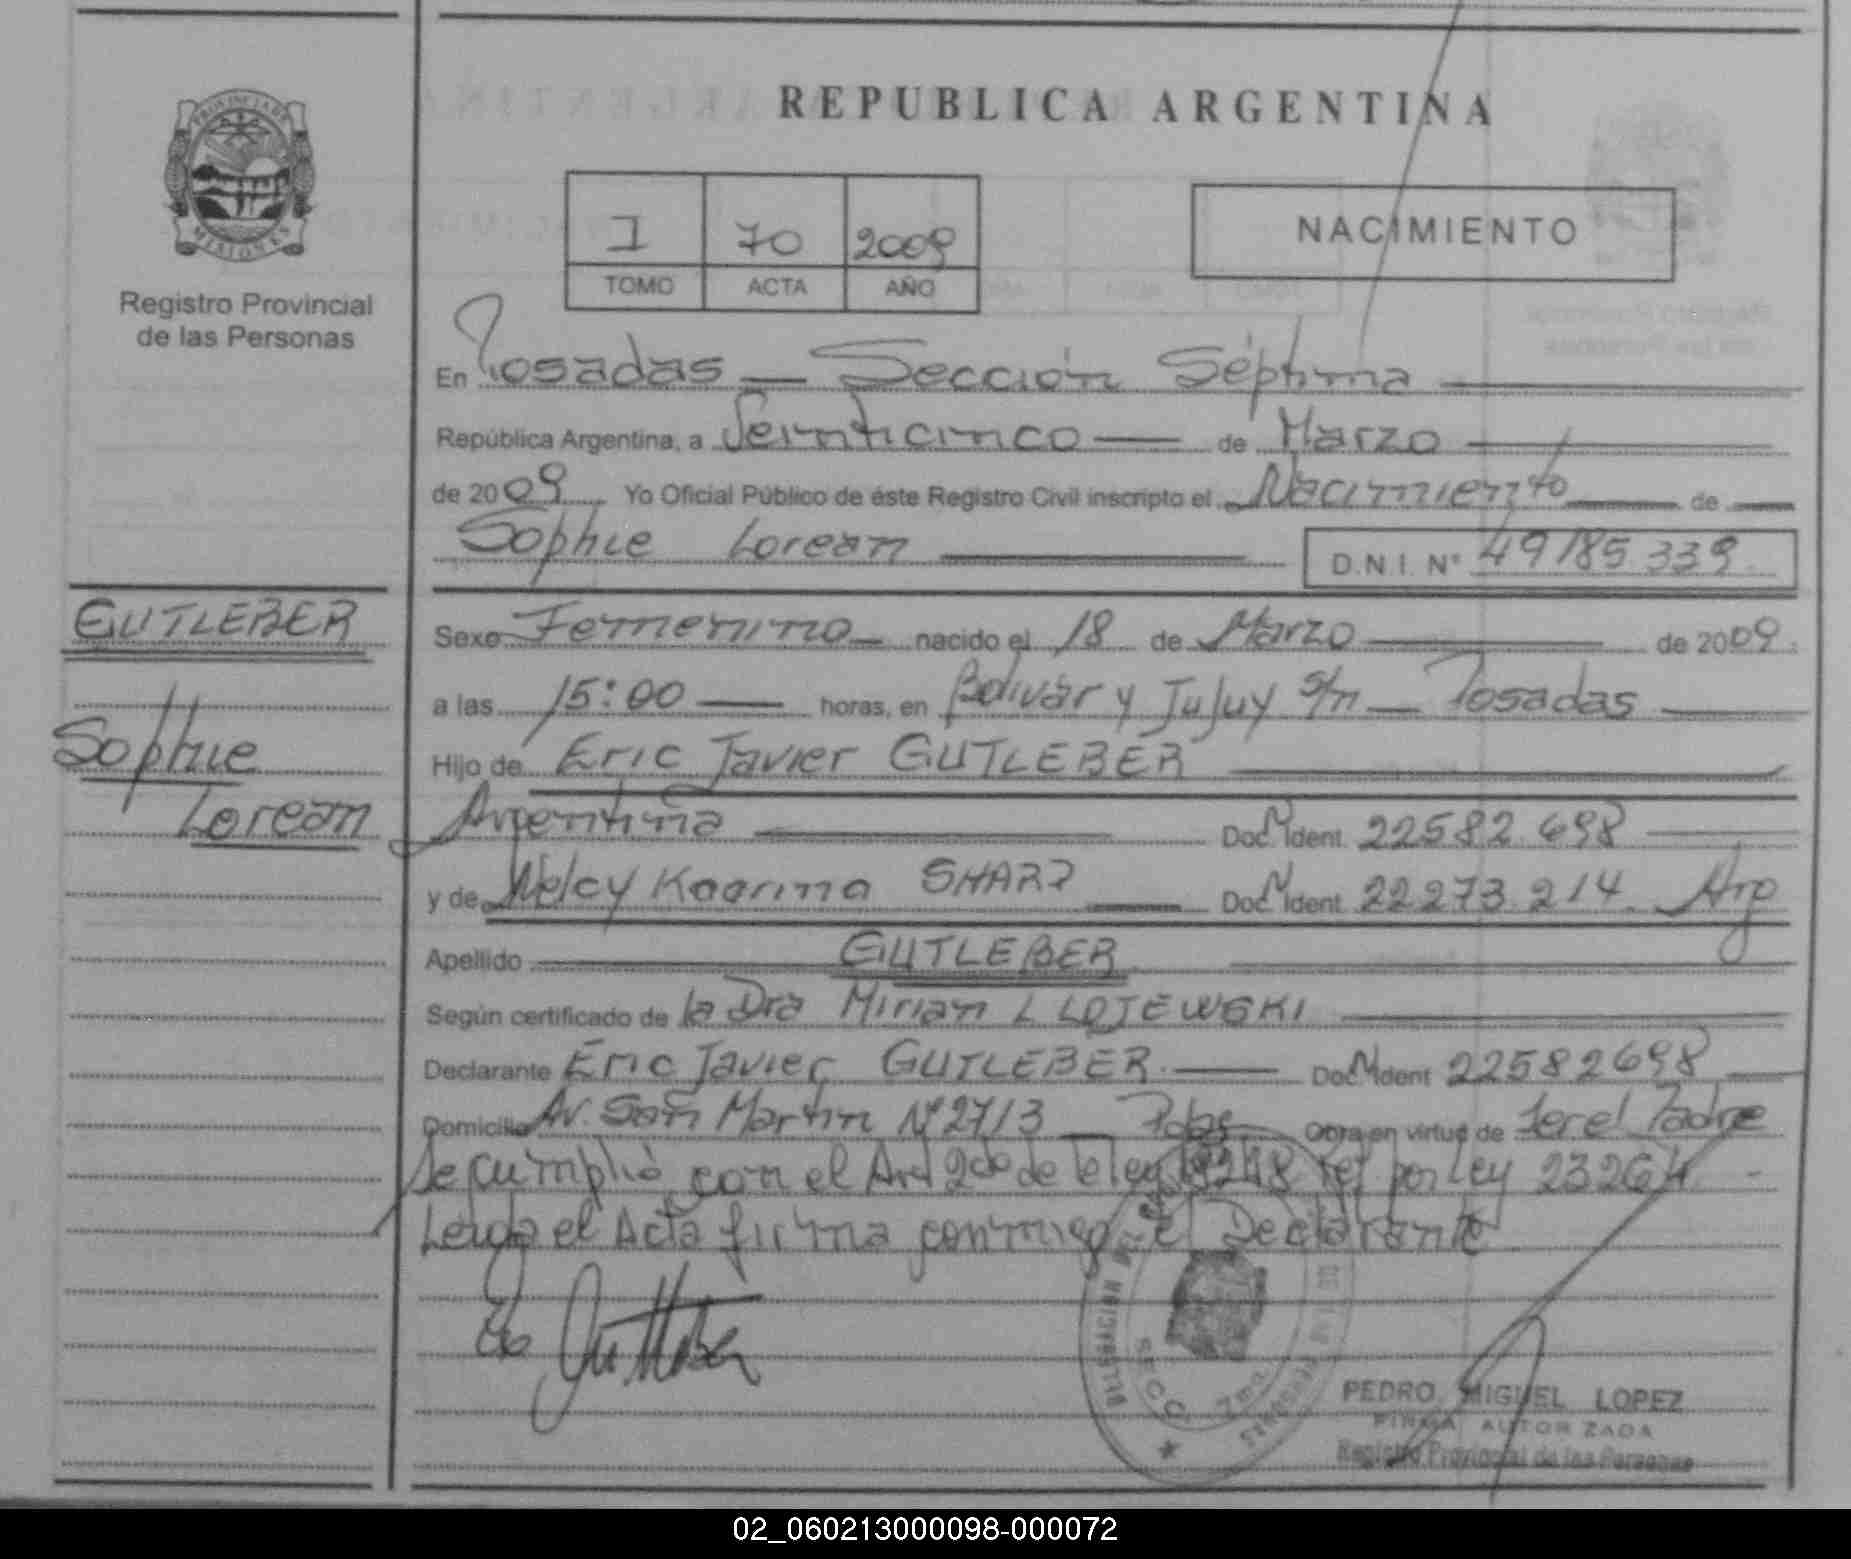 REPUBLICA ARGENTINA
PROVINCIA DE
MISIONES
Registro Provincial
de las Personas
I 70 2009
TOMO ACTA AÑO
NACIMIENTO
En Posadas — Sección Séptima
República Argentina, a Veinticinco — de Marzo
de 2009 Yo Oficial Público de éste Registro Civil inscripto el Nacimiento de
Sophie Lorean
D.N.I. N° 49185.339
GUTLEBER
Sophie
Lorean
Sexo Femenino nacido el 18 de Marzo de 2009
a las 15:00 horas, en Bolivar y Jujuy s/n — Posadas
Hijo de Eric Javier GUTLEBER
Argentina Doc. Ident. 22582.698
y de Nelcy Kaarina SHARP Doc. Ident. 22273.214 Arg
Apellido GUTLEBER
Según certificado de la Dra Mirian L LOJEWSKI
Declarante Eric Javier GUTLEBER. Doc. Ident 22582698
Domicilio Av. San Martin Nº 2713 — Pdas Obra en virtud de ser el Padre
Se cumplió con el Art 2do de la ley 18248 ref por Ley 23264 -
Leida el Acta firma conmigo el Declarante
PEDRO MIGUEL LOPEZ
FIRMA AUTORIZADA
Registro Provincial de las Personas
02_060213000098-000072